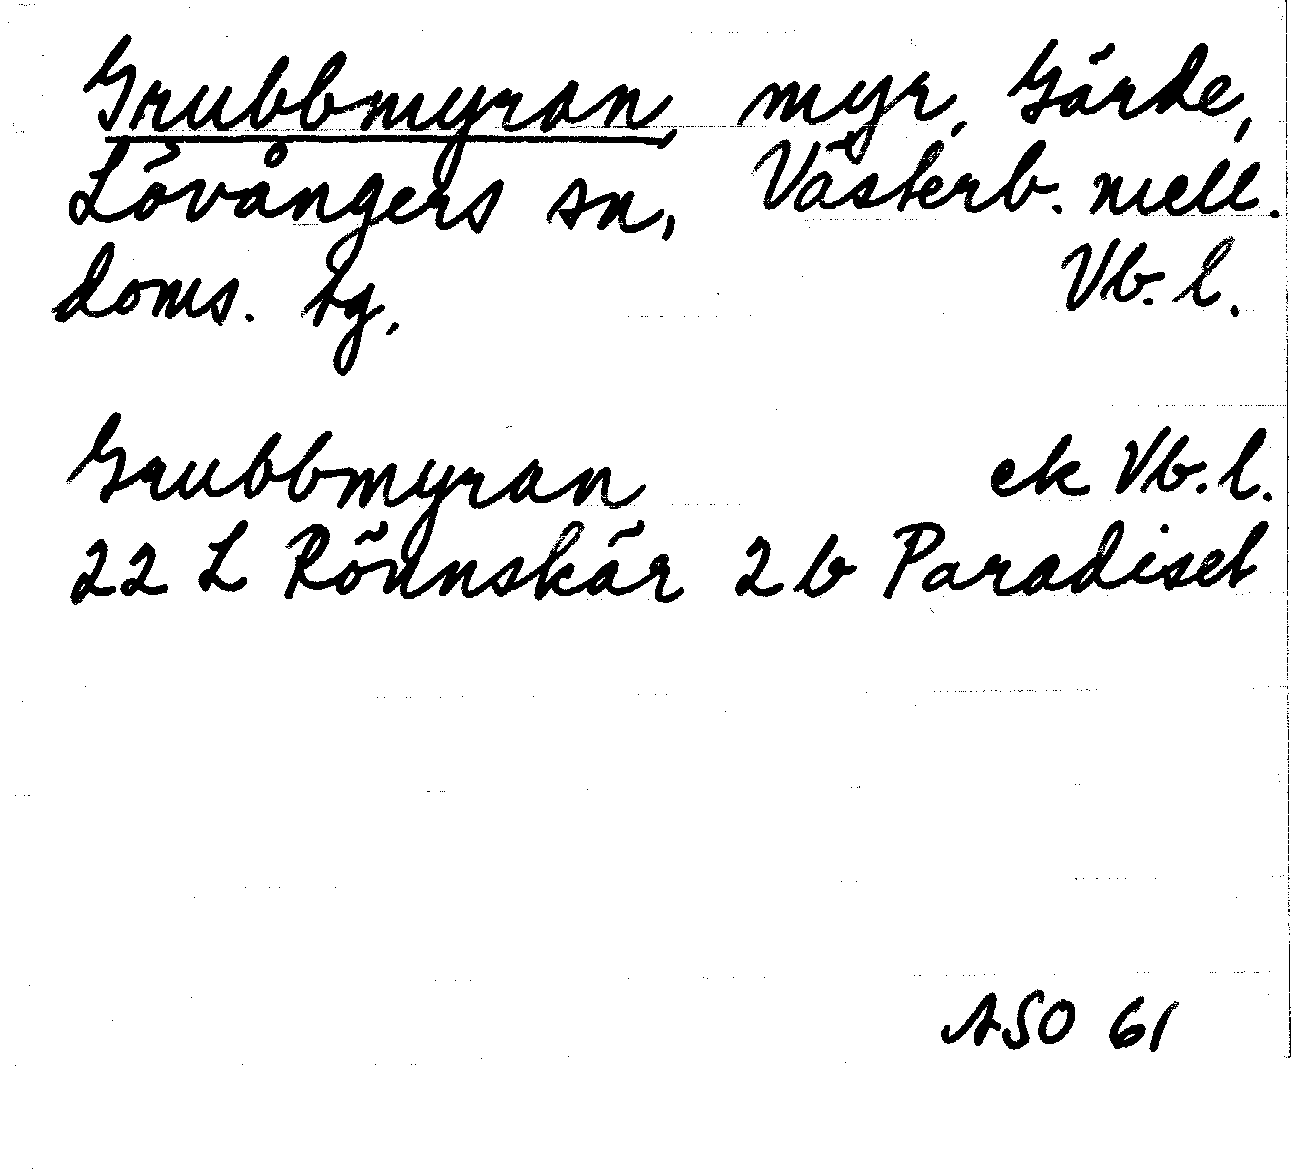 Grubbmyran, myr, Gärde,
Lövångers sn, Västerb. mell.
doms. tg, Vb. l.
Grubbmyran ek Vb. l.
22 L Rönnskär 2 b Paradiset
ASO 61